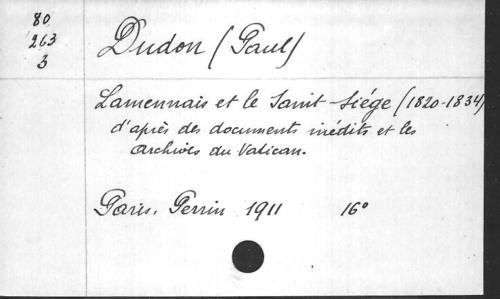 80
263
3
Dudon (Paul)
Lamennais et le Saint-Siége (1820-1834)
d'après des documents inédits et les
archives du Vatican.
Paris, Perrin 1911 16°